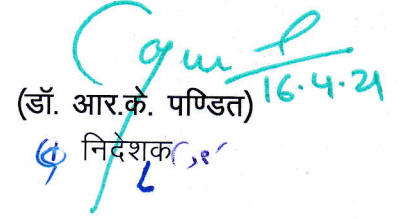 16.4.21
(डॉ. आर.के. पण्डित)
निदेशक